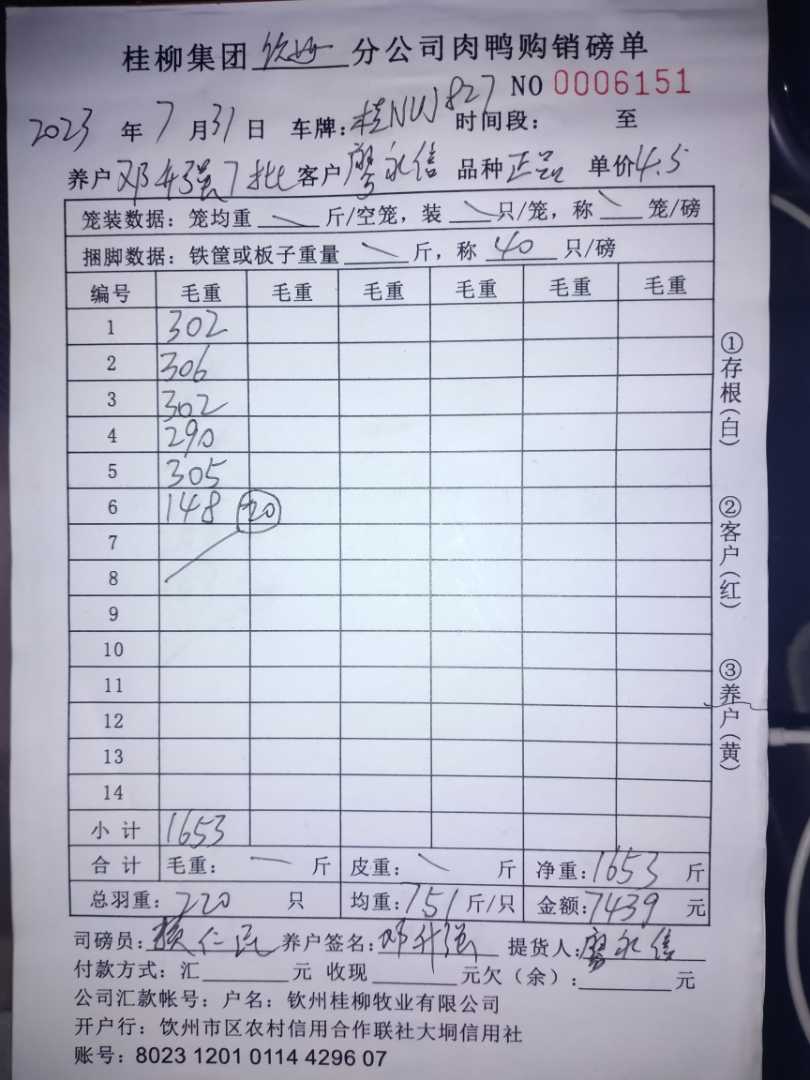 桂柳集团钦州分公司肉鸭购销磅单
NO 0006151
2023年7月31日 车牌:桂NW827 时间段: 至
养户邓升强7批客户廖永信 品种正品 单价4.5
笼装数据:笼均重 斤/空笼,装 只/笼,称 笼/磅
捆脚数据:铁筐或板子重量 斤,称 40 只/磅
编号 毛重 毛重 毛重 毛重 毛重 毛重
1 302
2 306
3 302
4 290
5 305
6 148 20
7
8
9
10
11
12
13
14
小计 1653
合计 毛重: 斤 皮重: 斤 净重:1653 斤
总羽重:220 只 均重:751斤/只 金额:7439 元
司磅员: 仁 养户签名:邓升强 提货人:廖永信
付款方式:汇 元 收现 元欠(余): 元
公司汇款帐号:户名:钦州桂柳牧业有限公司
开户行:饮州市区农村信用合作联社大垌信用社
账号:8023 1201 0114 4296 07
①存根(白)
②客户(红)
③养户(黄)